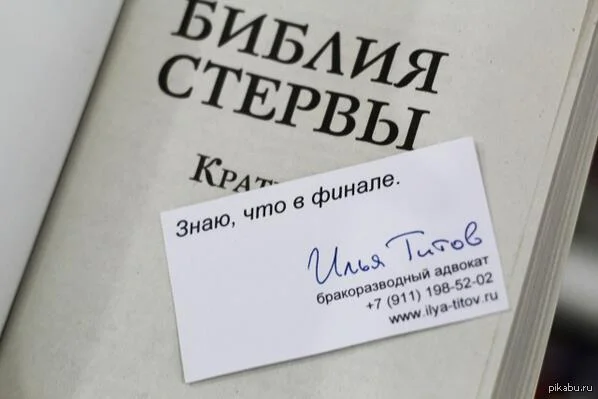 БИБЛИЯ
СТЕРВЫ
Знаю, что в финале.
Илья Титов
бракоразводный адвокат
+7 (911) 198-52-02
www.ilya-titov.ru
pikabu.ru